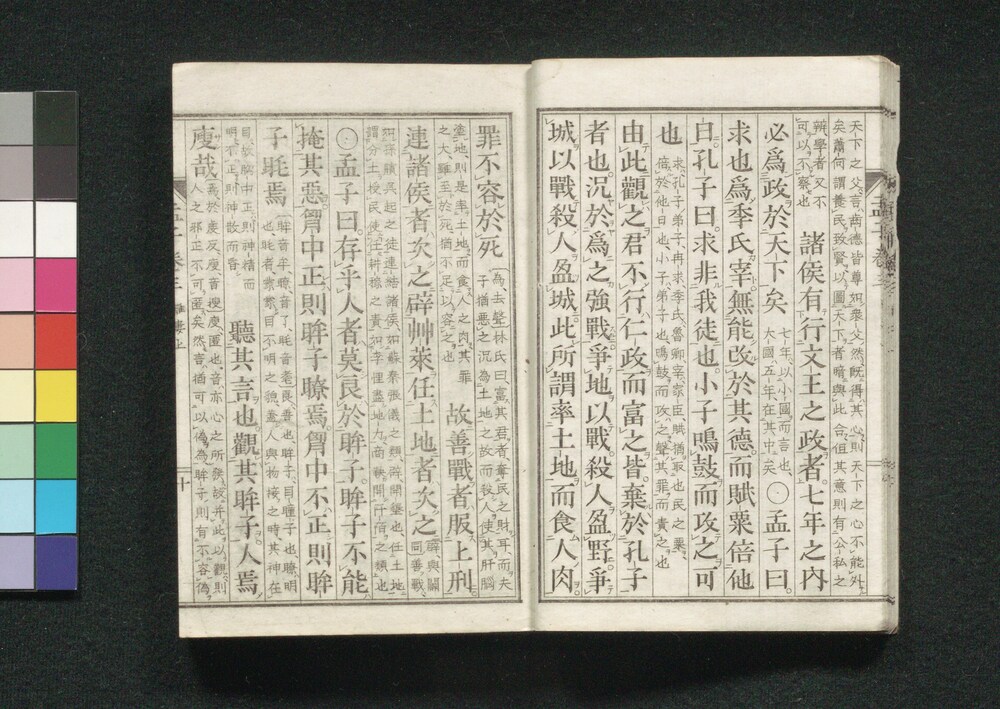 天下之父言齒德皆尊如衆父然既得其心則天下之心不能外
矣蕭何謂養民致賢以圖天下者暗與此合但其意則有公私之
辨學者又不
可以不察也
諸侯有行文王之政者七年之內
必爲政於天下矣
七年以小國而言也
大國五年在其中矣
○孟子曰
求也爲季氏宰無能改於其德而賦粟倍他
日孔子曰求非我徒也小子鳴鼓而攻之可
也
求孔子弟子冉求季氏魯卿宰家臣賦猶取也取民之粟
倍於他日也小子弟子也鳴鼓而攻之聲其罪而責之也
由此觀之君不行仁政而富之皆棄於孔子
者也況於爲之強戰爭地以戰殺人盈野爭
城以戰殺人盈城此所謂率土地而食人肉
罪不容於死
爲去聲林氏曰富其君者奪民之財耳而夫
子猶惡之況為土地之故而殺人使其肝腦
塗地則是率土地而食人之肉其罪
之大雖至於死猶不足以容之也
故善戰者服上刑
連諸侯者次之辟艸萊任土地者次之
辟與闢
同善戰
如孫臏吳起之徒連結諸侯如蘇秦張儀之類辟開墾也任土地
謂分土授民使任耕稼之責如李悝盡地力商鞅開阡陌之類也
○孟子曰存乎人者莫良於眸子眸子不能
掩其惡胷中正則眸子瞭焉胷中不正則眸
子眊焉
眸音牟瞭音了眊音耄良善也眸子目瞳子也瞭明
也眊者蒙蒙目不明之貌蓋人與物接之時其神在
目故胷中正則神精而
明不正則神散而昏
聽其言也觀其眸子人焉
廋哉
焉於虔反廋音搜廋匿也言亦心之所發故并此以觀則
人之邪正不可匿矣然言猶可以偽為眸子則有不容偽
孟子卷三
離婁上
十